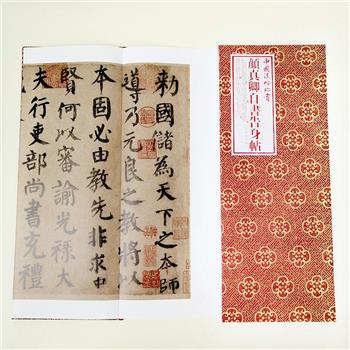 勅國儲為天下之本師
導乃元良之教將以
本固必由教先非求中
賢何以審諭光祿大
夫行吏部尚書充禮
顏真卿自書告身帖